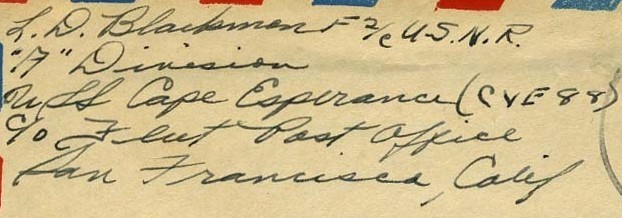 L. D. Blackmon F 2/c U.S.N.R.
"A" Division
U.S.S. Cape Esperance (CVE 88)
c/o Fleet Post Office
San Francisco, Calif